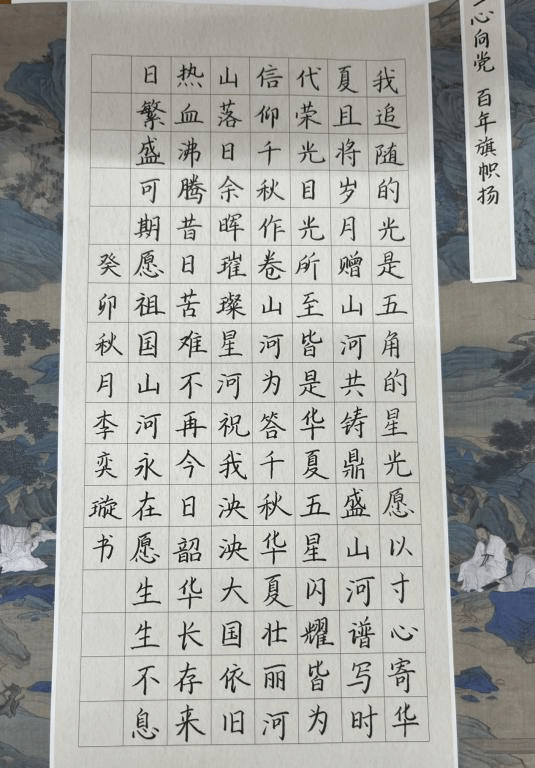 心向党 百年旗帜扬
我追随的光是五角的星光愿以寸心寄华
夏且将岁月赠山河共铸鼎盛山河谱写时
代荣光目光所至皆是华夏五星闪耀皆为
信仰千秋作卷山河为答千秋华夏壮丽河
山落日余晖璀璨星河祝我泱泱大国依旧
热血沸腾昔日苦难不再今日韶华长存来
日繁盛可期愿祖国山河永在愿生生不息
癸卯秋月李奕璇书